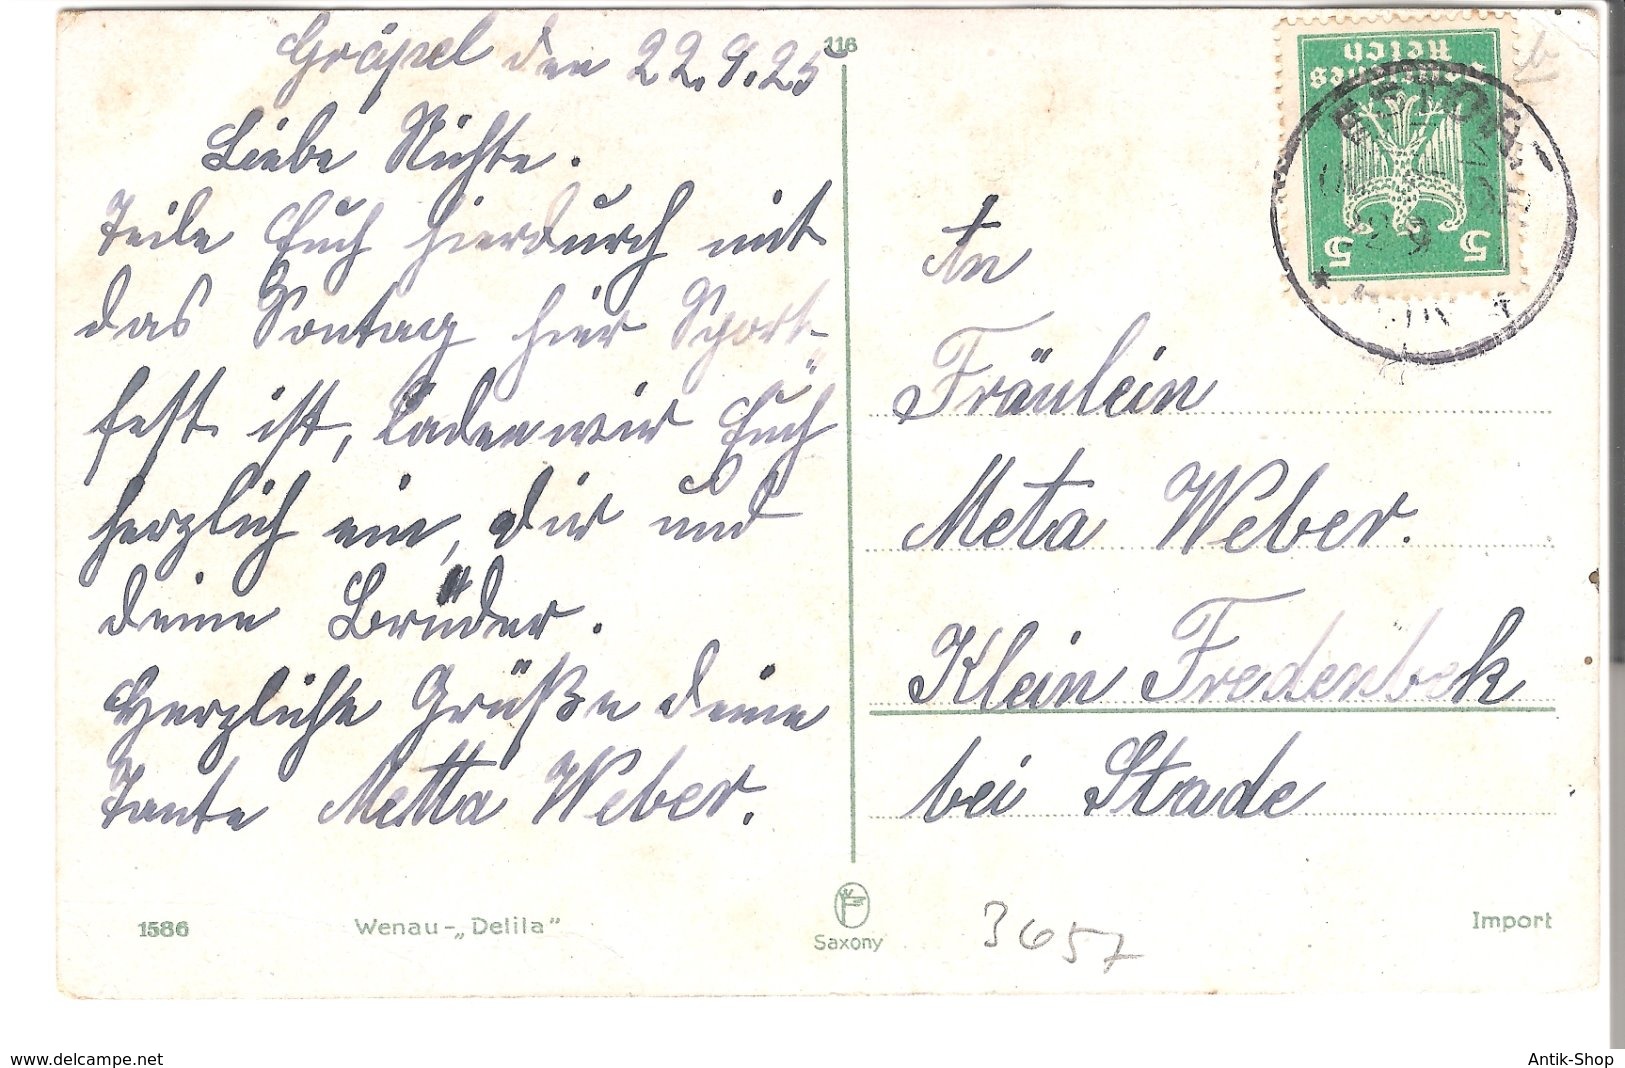 Gräpel den 22.9.25
Liebe Nichte.
Teile Euch hierdurch mit
das Sontag hier Sport-
fest ist, laden wir Euch
herzlich ein, dir und
deine Brüder.
Herzliche Grüße deine
Tante Metta Weber.
116
Deutsches
Reich
5 5
An
Fräulein
Meta Weber.
Klein Fredenbek
bei Stade
1586
Wenau-„Delila“
Saxony
3657
Import
www.delcampe.net
Antik-Shop